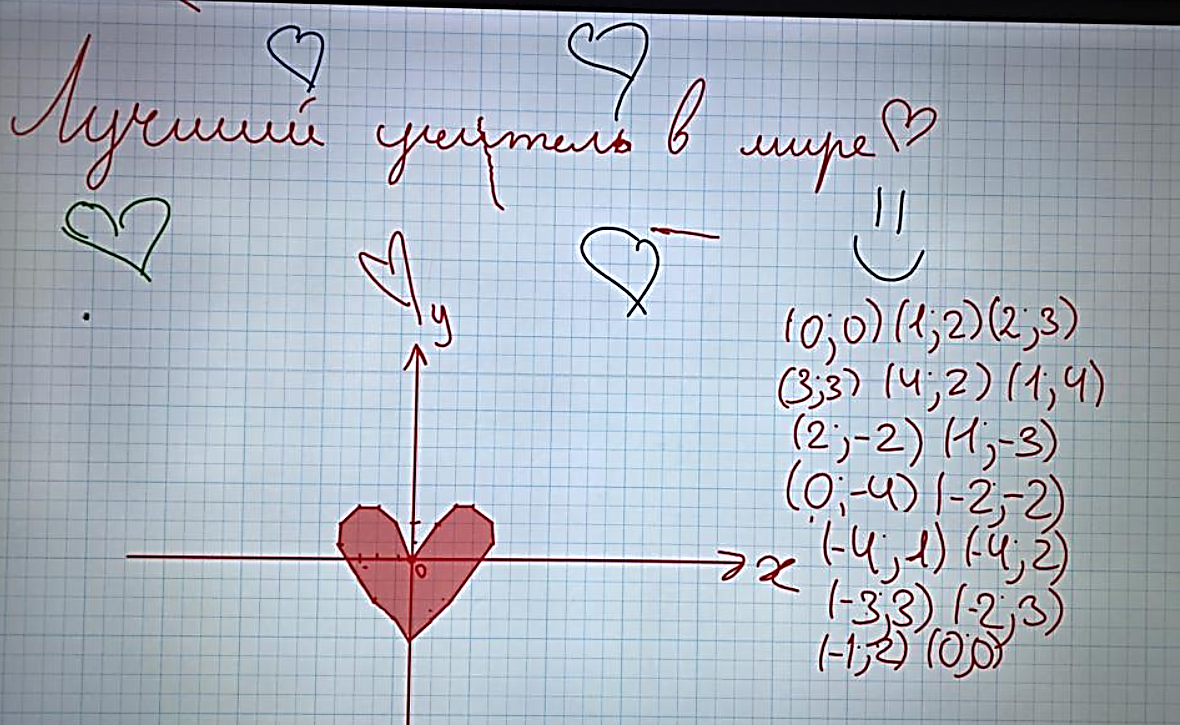 Лучший учитель в мире
y
(0;0) (1;2) (2;3)
(3;3) (4;2) (1;4)
(2;-2) (1;-3)
(0;-4) (-2;-2)
0
x
(-4;1) (-4;2)
(-3;3) (-2;3)
(-1;2) (0;0)